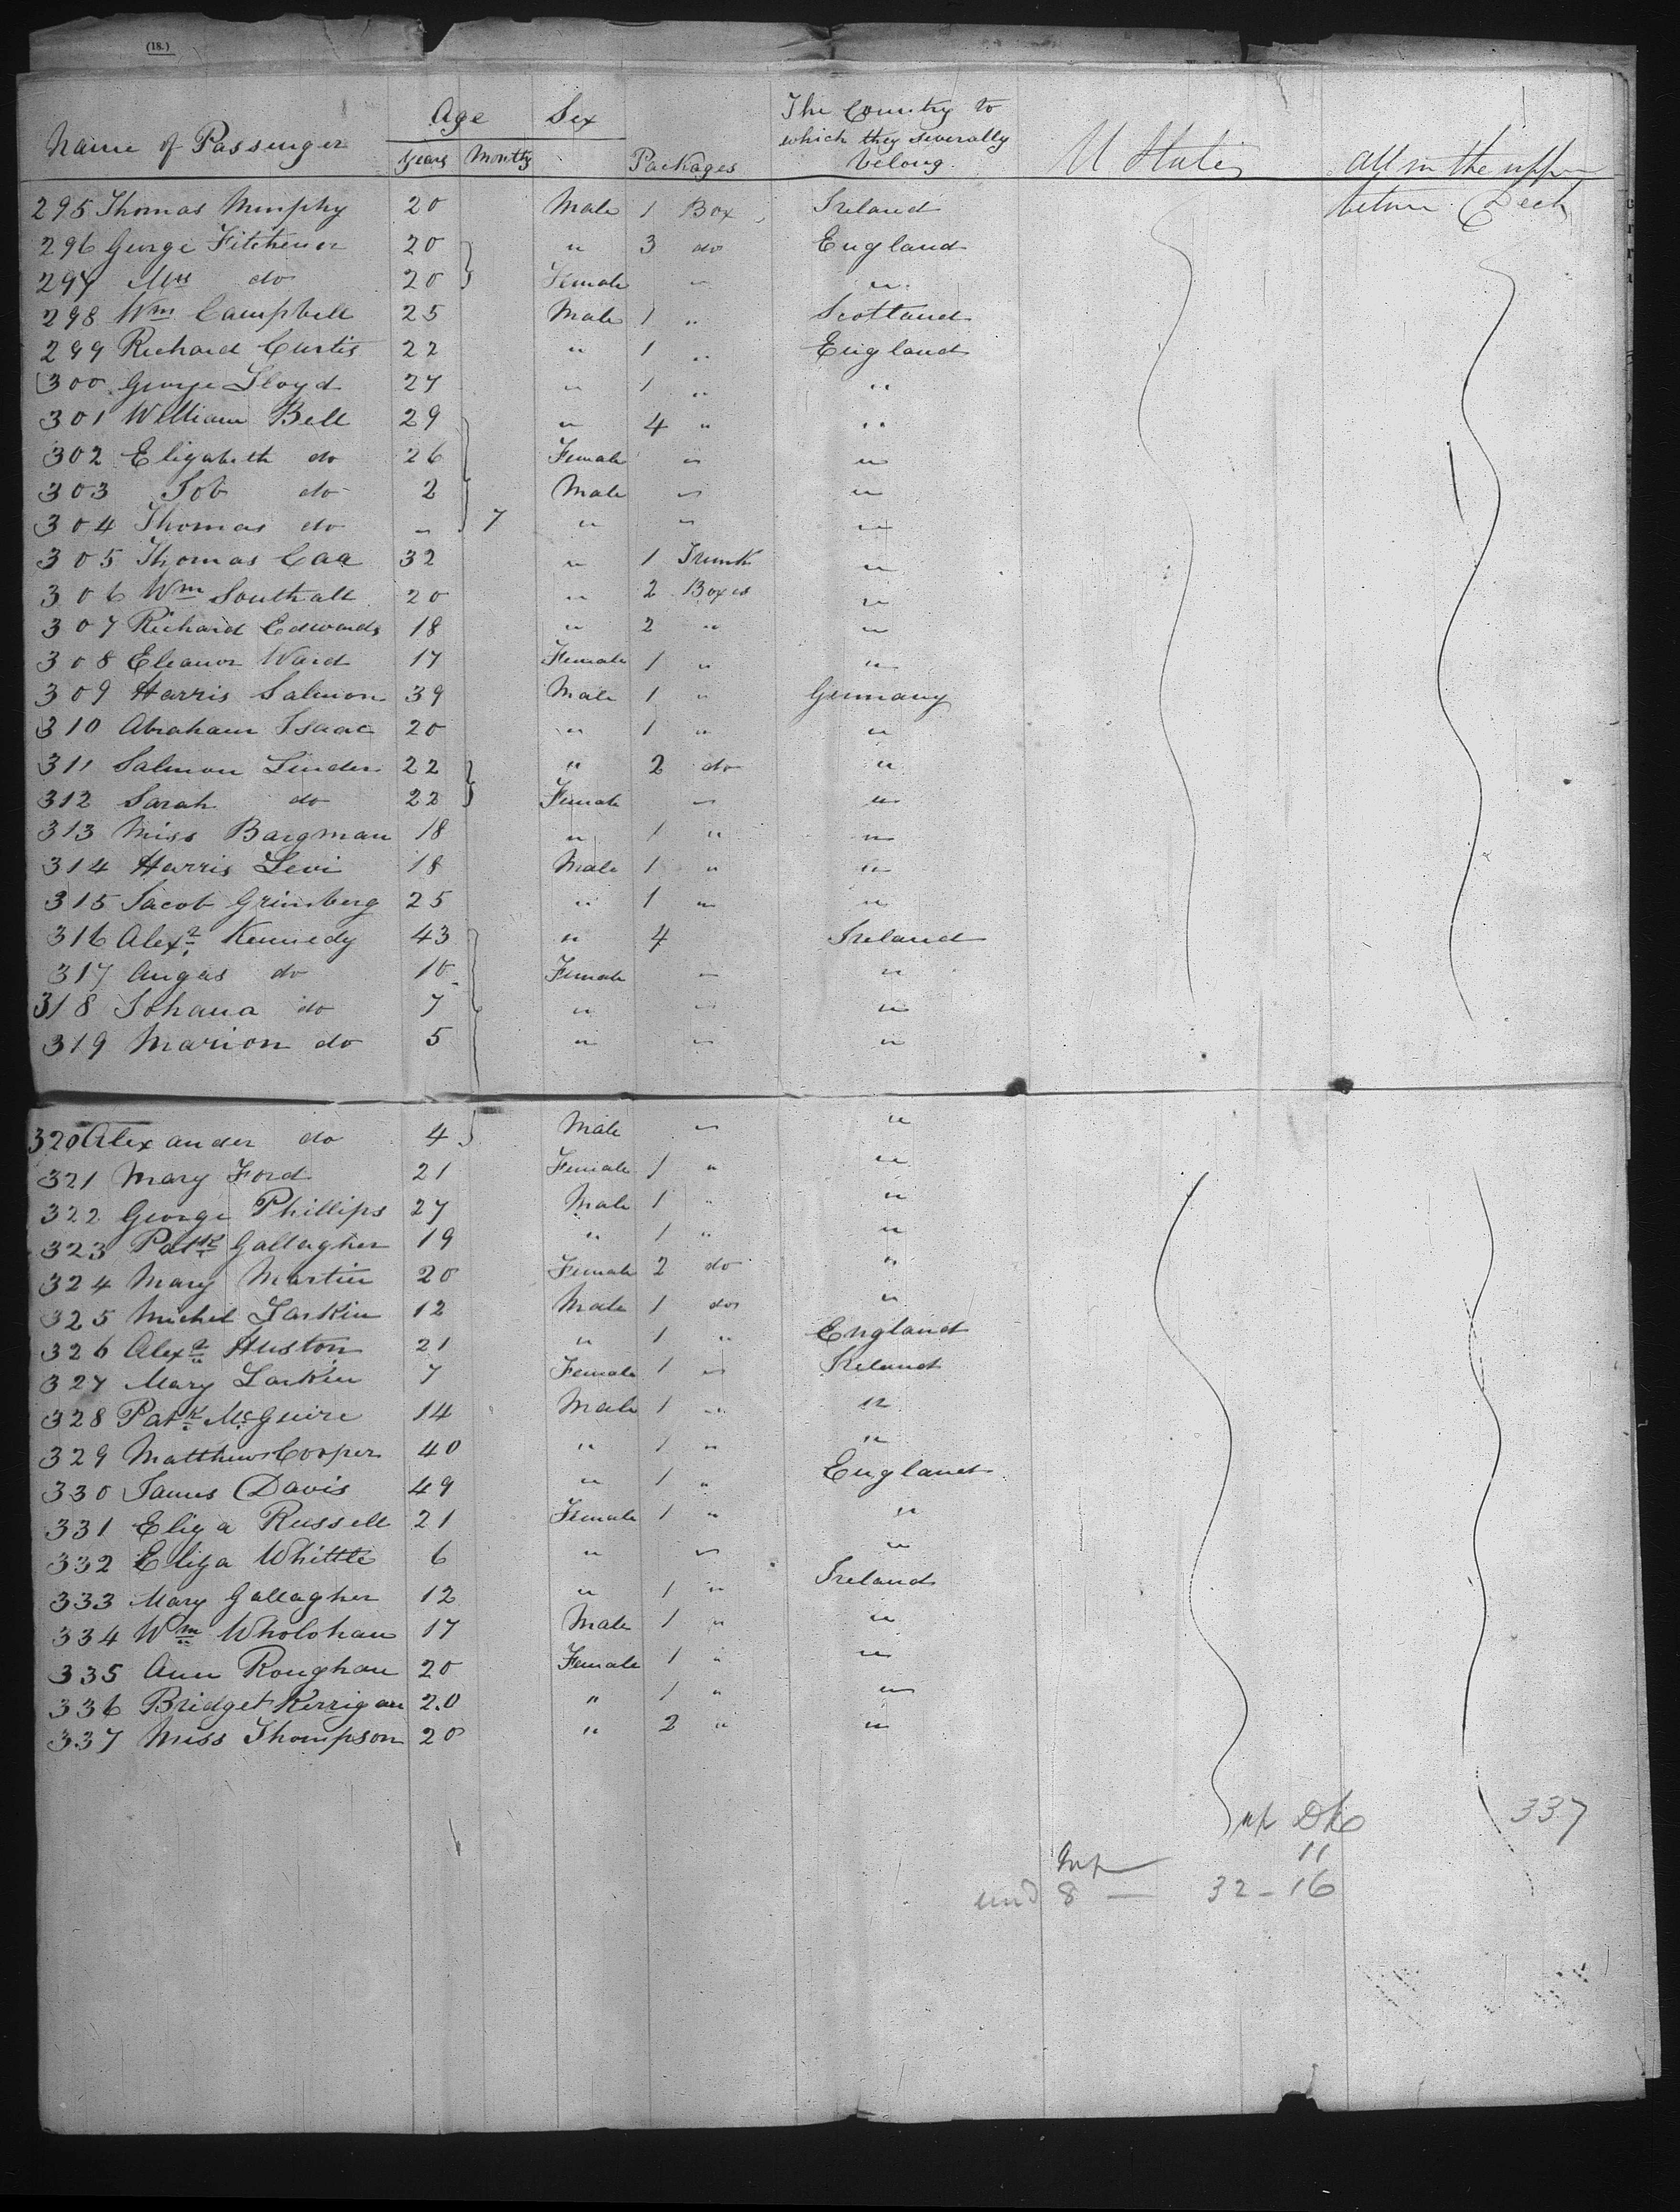 (18.)
Name of Passenger Age Sex Packages The Country to
years Months which they severally
belong U States all in the upper
295 Thomas Murphy 20 Male 1 Box Ireland between Deck
296 George Fitchener 20 " 3 do England
297 Mrs do 20 Female " "
298 Wm Campbell 25 Male 1 " Scotland
299 Richard Curtis 22 " 1 " England
300 George Lloyd 27 " 1 " "
301 William Bell 29 " 4 " "
302 Elizabeth do 26 Female " "
303 Job do 2 Male " "
304 Thomas do - 7 " " "
305 Thomas Caa 32 " 1 Trunk "
306 Wm Southall 20 " 2 Boxes "
307 Richard Edwards 18 " 2 " "
308 Eleanor Ward 17 Female 1 " "
309 Harris Salmon 39 Male 1 " Germany
310 Abraham Isaac 20 " 1 " "
311 Salmon Linder 22 " 2 do "
312 Sarah do 22 Female " "
313 Miss Bargman 18 " 1 " "
314 Harris Levi 18 Male 1 " "
315 Jacob Grinsberg 25 " 1 " "
316 Alexr Kennedy 43 " 4 Ireland
317 Angas do 10 Female " "
318 Johana do 7 " " "
319 Marion do 5 " " "
320 Alexander do 4 Male " "
321 Mary Ford 21 Female 1 " "
322 George Phillips 27 Male 1 " "
323 Patk Gallagher 19 " 1 " "
324 Mary Martin 20 Female 2 do "
325 Michel Larkin 12 Male 1 do "
326 Alexr Huston 21 " 1 " England
327 Mary Larkin 7 Female 1 " Ireland
328 Patk McGuire 14 Male 1 " "
329 Matthew Cooper 40 " 1 " "
330 James Davis 49 " 1 " England
331 Eliza Russell 21 Female 1 " "
332 Eliza Whittle 6 " " "
333 Mary Gallagher 12 " 1 " Ireland
334 Wm Wholohan 17 Male 1 " "
335 Ann Roughan 20 Female 1 " "
336 Bridget Kerrigan 20 " 1 " "
337 Miss Thompson 20 " 2 " "
up Dk 337
Inf 11
und 8 — 32 - 16